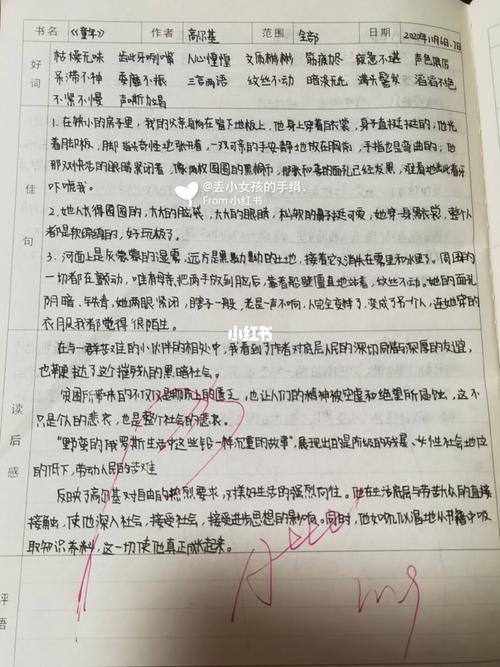 书名 《童年》 作者 高尔基 范围 全部 2020年11月6日.7日
好词
枯燥无味 齿龇牙咧嘴 人心惶惶 文质彬彬 筋疲力尽 疲惫不堪 声色俱厉
呆滞不神 萎靡不振 三言两语 纹丝不动 暗淡无光 满头鬈发 滔滔不绝
不紧不慢 声嘶力竭
佳句
1.在狭小的房子里,我的父亲躺在窗下地板上,他身上穿着白衣裳,身子直挺挺的;他光
着脚板,脚指头奇怪地张开着,一双可亲的手安静地放在胸前,手指也是弯曲的;他
那双快活的眼睛紧闭着,像两枚圆圆的黑铜币,那亲和善的面孔已经发黑,难看地龇着牙
吓唬我。
@丢小女孩的手绢、
From 小红书
2.她长得圆圆的,大大的脑袋,大大的眼睛,松软的鼻子挺可爱,她穿一身黑衣裳,整个人
都是软绵绵的,好玩极了。
3.河面上是灰蒙蒙的湿雾,远方是黑黝黝的土地,接着它又消失在雾里和水里了。周围的
一切都在颤动,唯有母亲,把两手放到脑后,靠着船壁直直地站着,纹丝不动。她的面孔
阴暗、铁青,她两眼紧闭,瞎子一般,老是一声不响,人完全变样了,变成了另一个人,连她穿的
衣服我都觉得很陌生。
小红书
读后感
在与一群苦难的小伙伴的相处中,我看到了作者对底层人民的深切同情与深厚的友谊,
也鞭挞了这个摧残人的黑暗社会。
贫困所带来的不仅仅是物质上的匮乏,也让人们的精神被空虚和绝望所腐蚀,这不
只是个人的悲哀,也是整个社会的悲哀。
“野蛮的俄罗斯生活中这些铅一样沉重的故事”,展现出的是阶级的残暴、女性社会地位
的低下,劳动人民的苦难
反映了高尔基对自由的热烈要求,对美好生活的强烈向往。他在生活底层与劳苦大众的直接
接触,使他深入社会,接受社会,接受进步思想的影响。同时,他如饥似渴地从书籍中吸
取知识养料,这一切使他真正成长起来。
评语